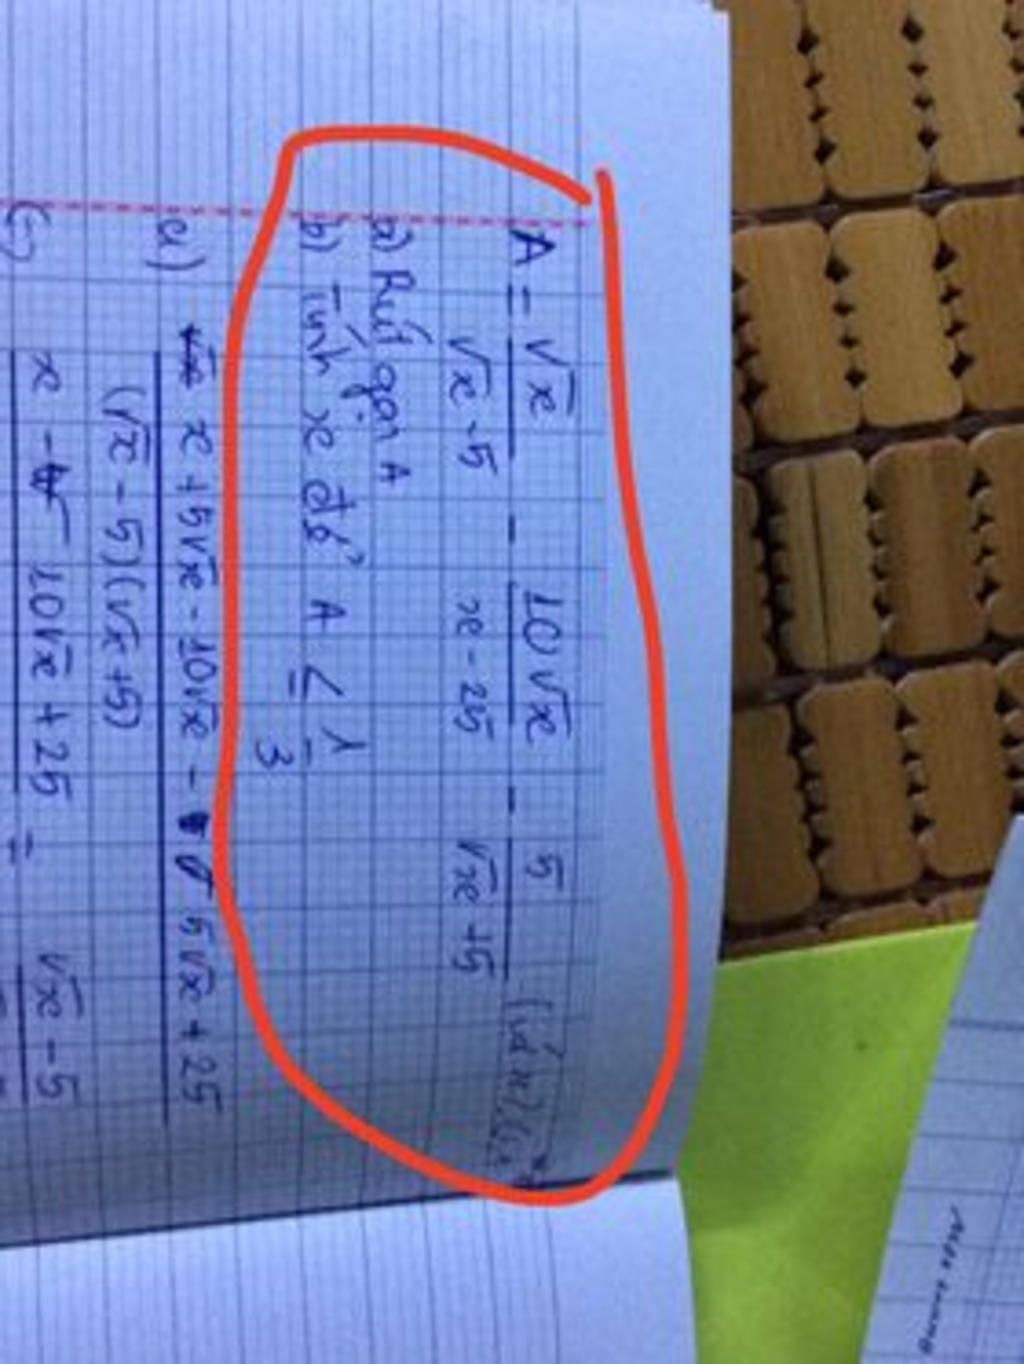 A = √x / (√x - 5) - 10√x / (x - 25) - 5 / (√x + 5) (với x
a) Rút gọn A
b) Tính x để A < 1/3
a) x + 5√x - 10√x - 5√x + 25 / (√x - 5)(√x + 5)
x - 10√x + 25 = √x - 5